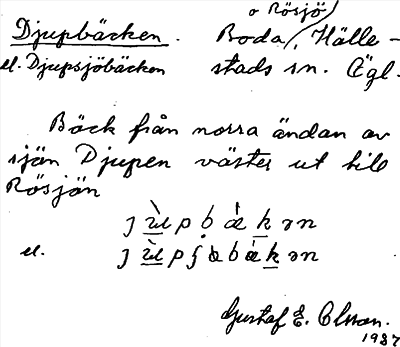 o Rösjö
Djupbäcken. Boda, Hälle-
el. Djupsjöbäcken stads sn. Ögl.
Bäck från norra ändan av
sjön Djupen väster ut till
Rösjön
el.
Gustaf E. Olsson.
1937